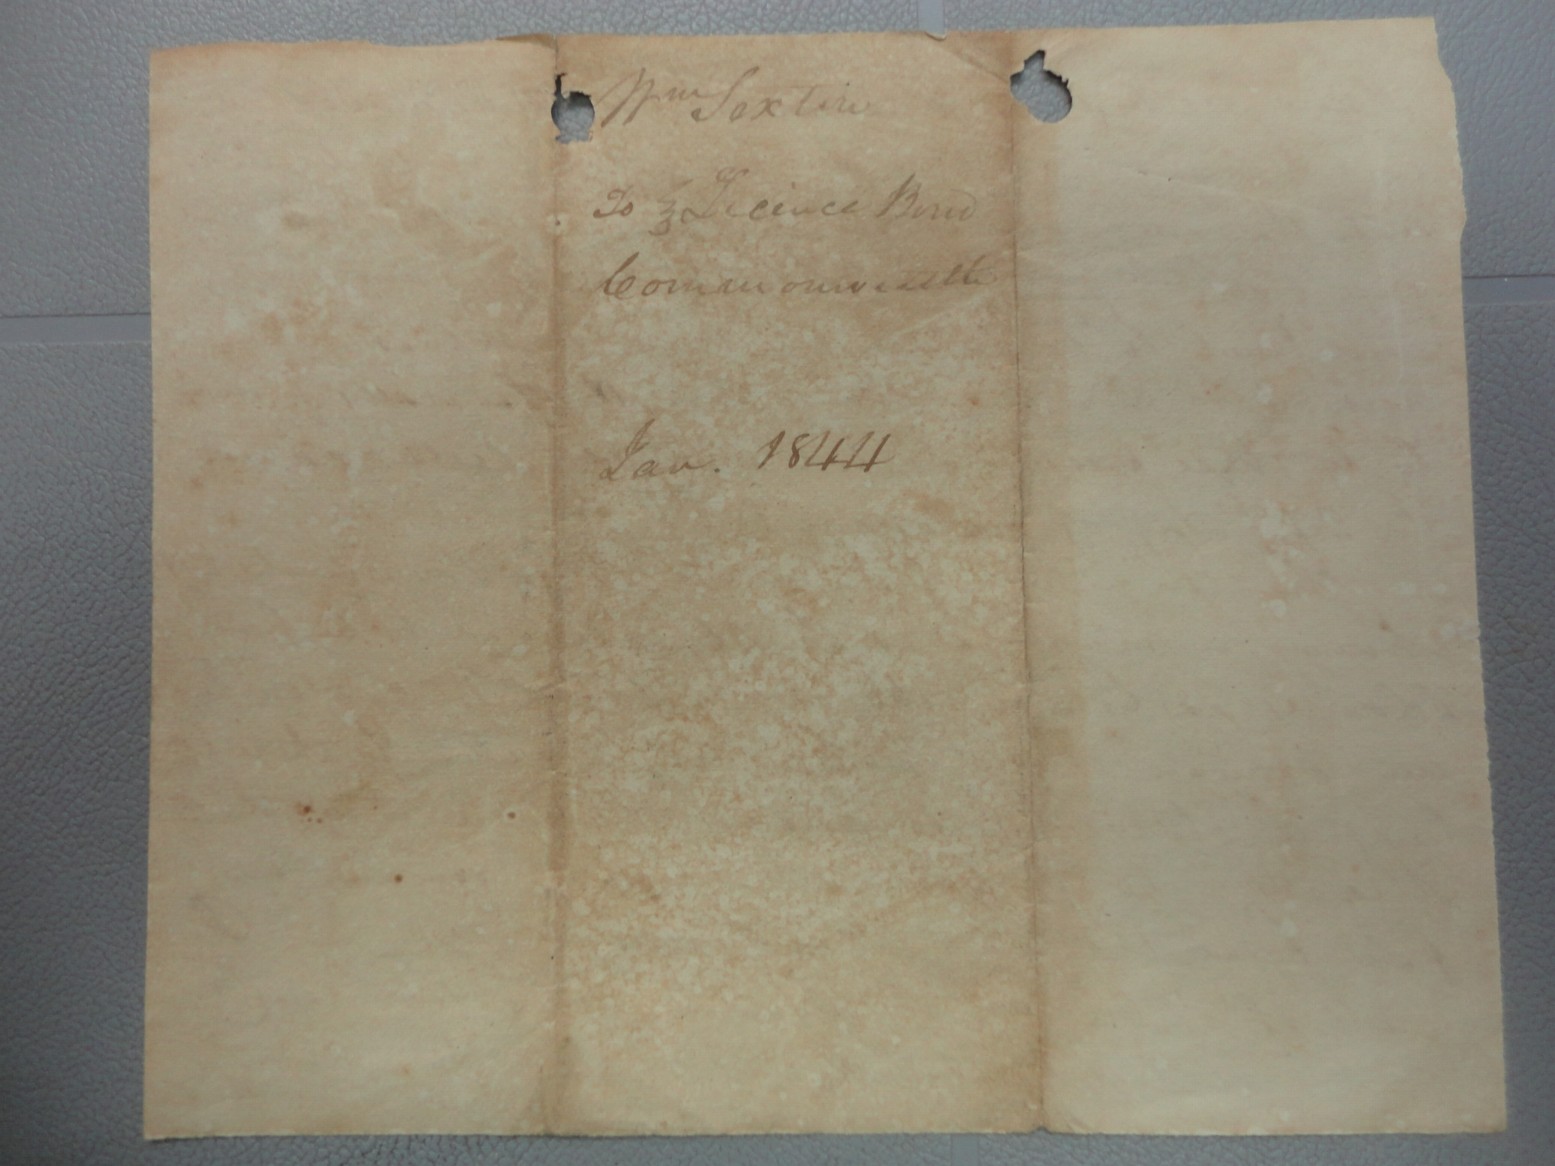 Wm Sextin
To } Licence Bond
Commonwealth
Jan. 1844